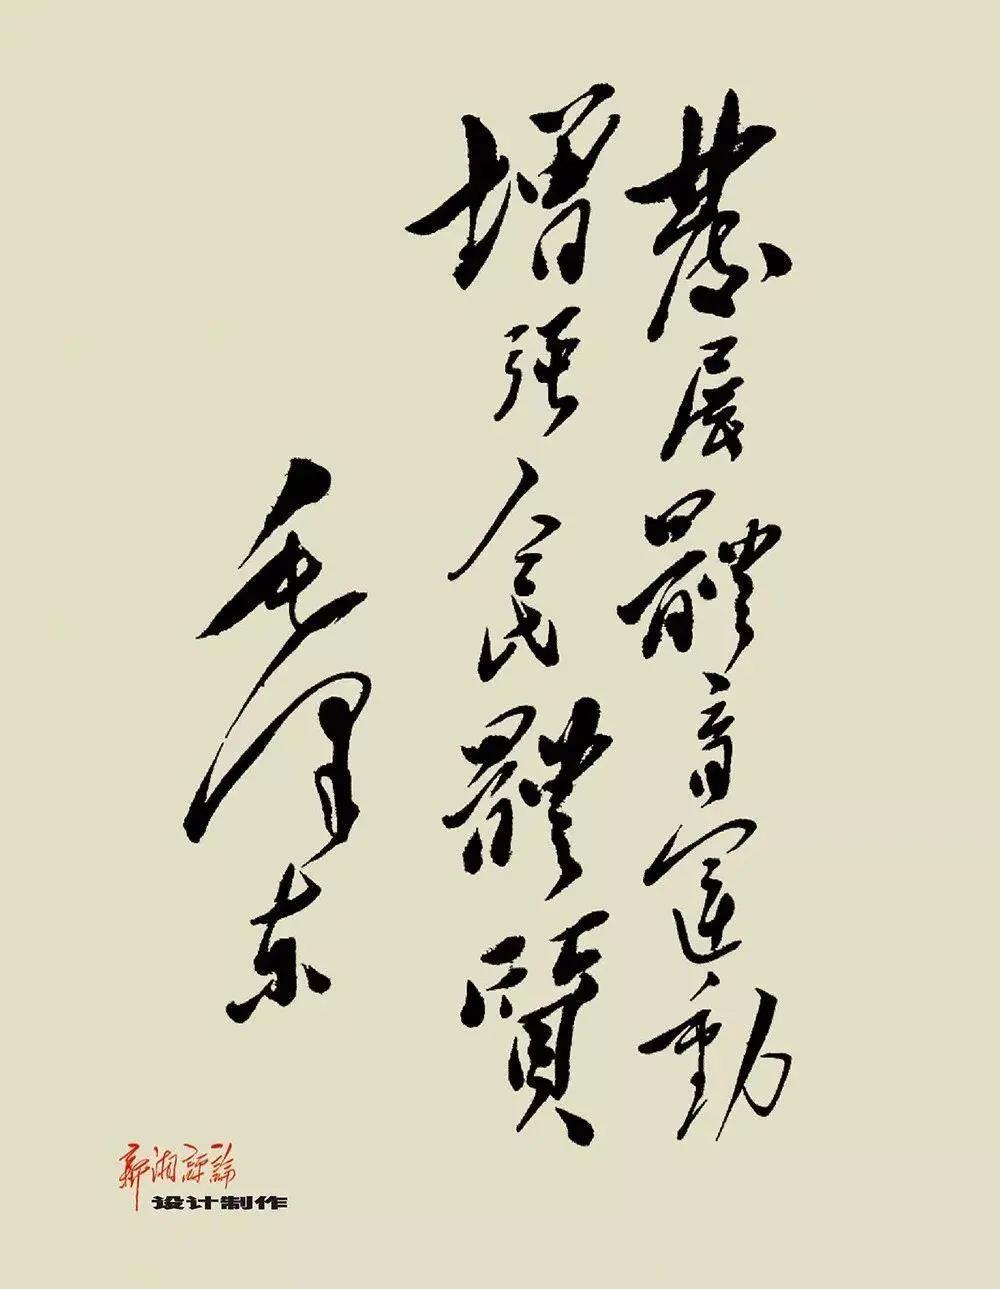 發展體育運動
增強人民體質
毛澤東
新湘評論
设计制作